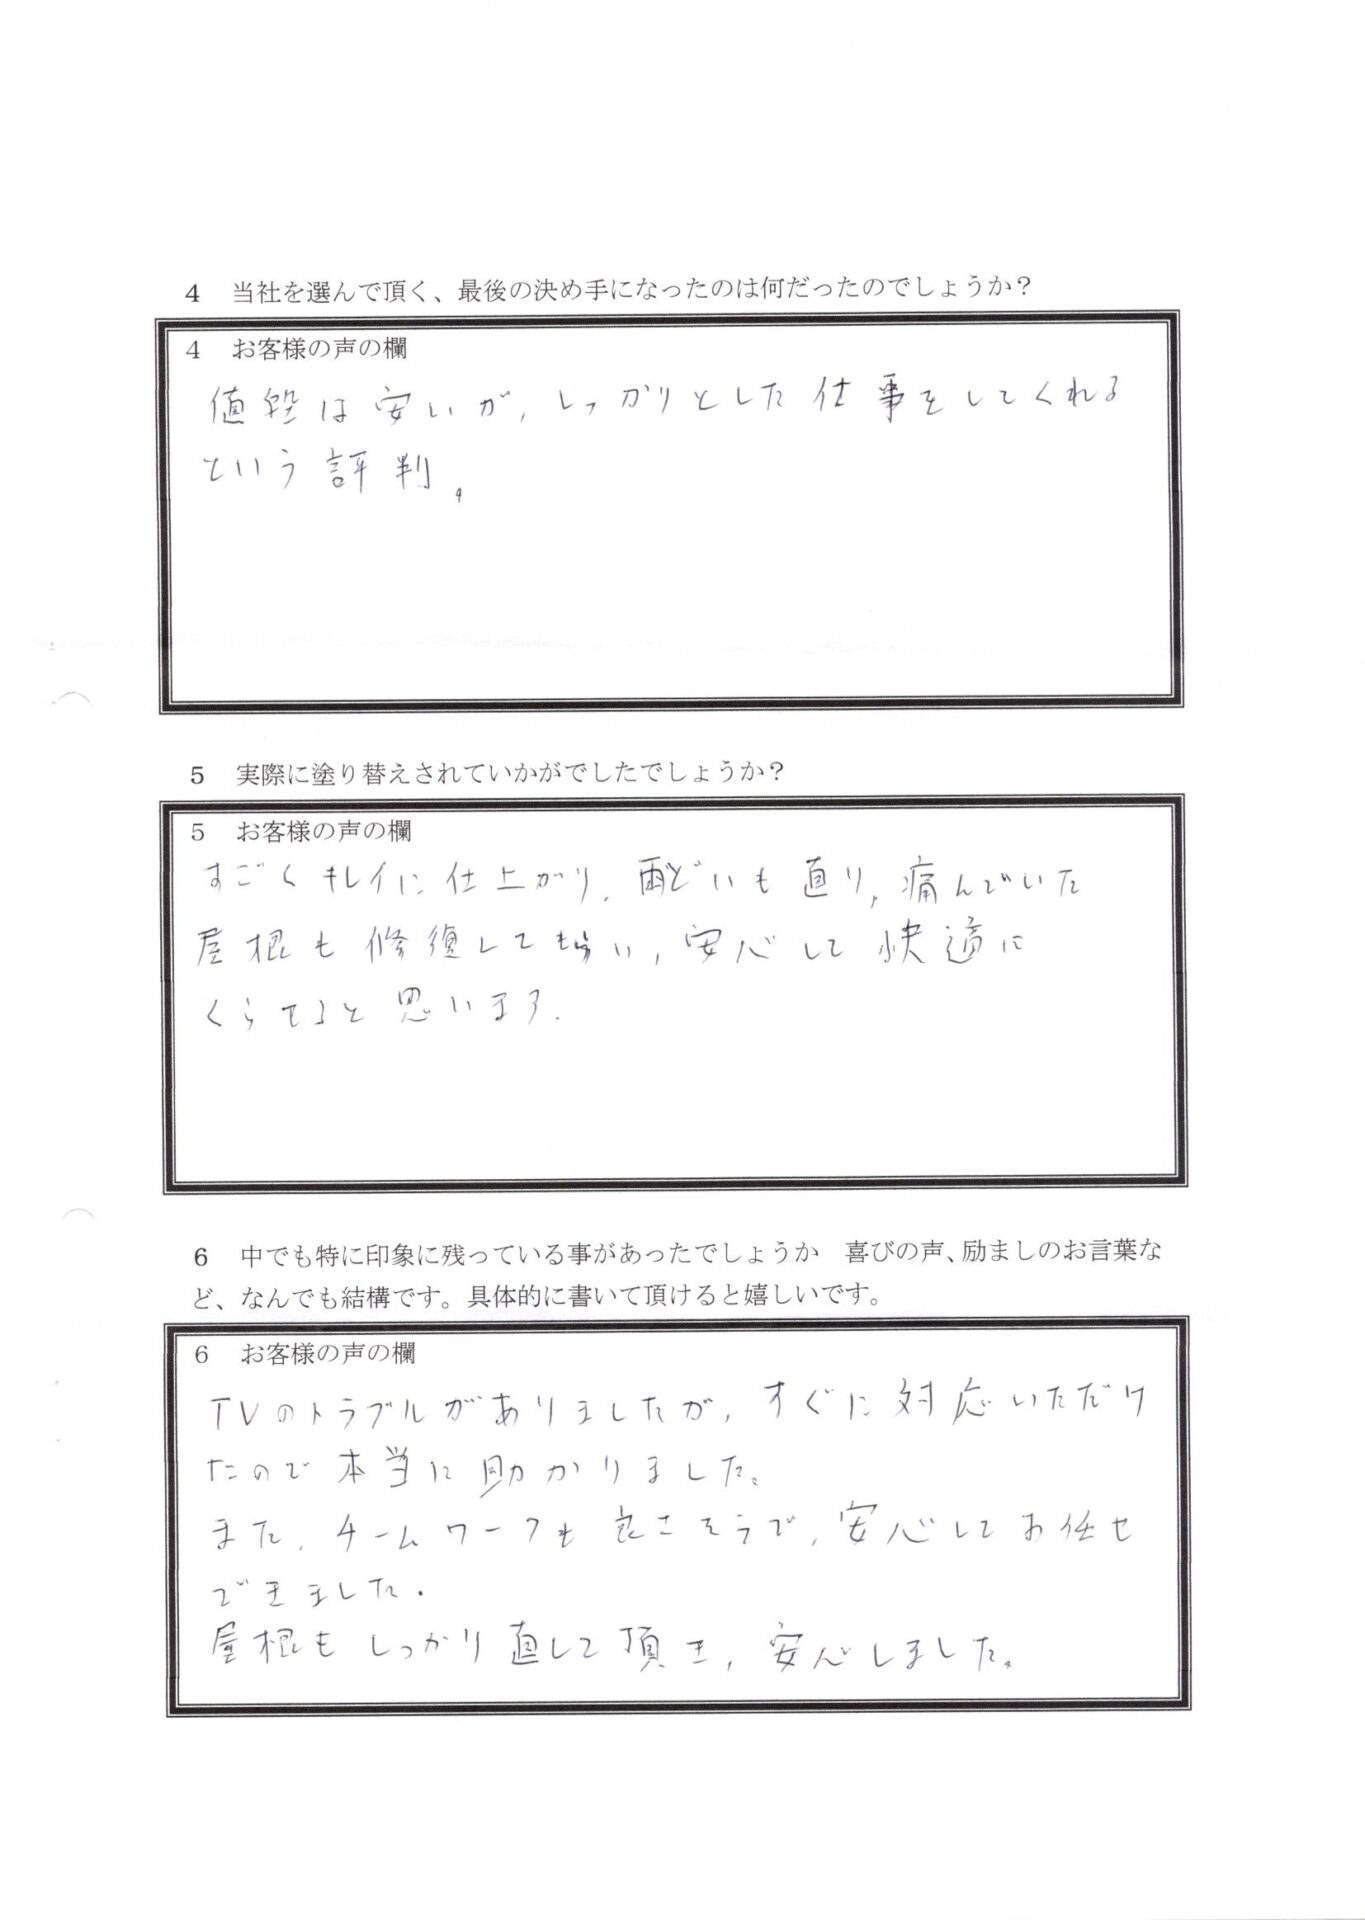 4 当社を選んで頂く、最後の決め手になったのは何だったのでしょうか？
4 お客様の声の欄
値段は安いが、しっかりとした仕事をしてくれる
という評判。
5 実際に塗り替えされていかがでしたでしょうか？
5 お客様の声の欄
すごくキレイに仕上がり、雨どいも直り、痛んでいた
屋根も修復してもらい、安心して快適に
くらせると思います。
6 中でも特に印象に残っている事があったでしょうか 喜びの声、励ましのお言葉な
ど、なんでも結構です。具体的に書いて頂けると嬉しいです。
6 お客様の声の欄
TVのトラブルがありましたが、すぐに対応いただけ
たので本当に助かりました。
また、チームワークも良さそうで、安心してお任せ
できました。
屋根もしっかり直して頂き、安心しました。